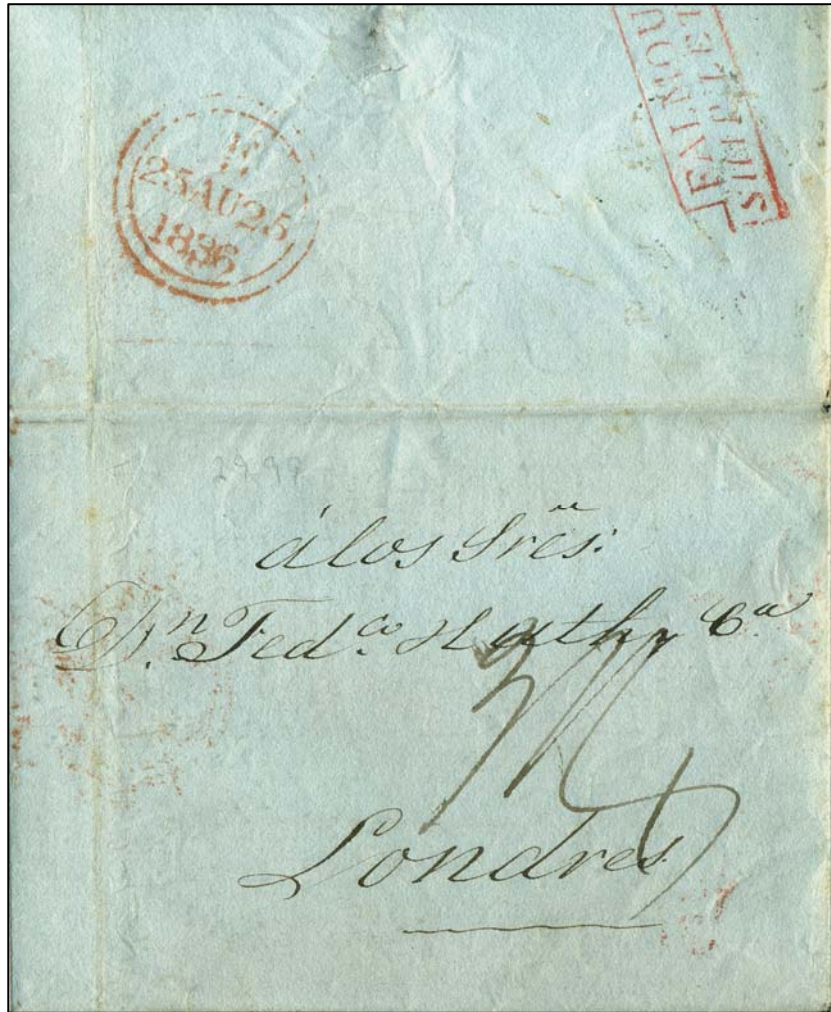 25AU25
1836
FALMOU
SHIP LET
2498
á los Sres:
Dn. Fedco. Huth y Ca.
Londres